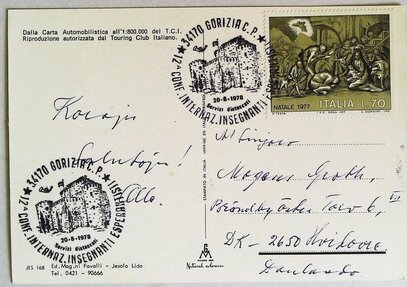 Dalla Carta Automobilistica all'1:800.000 del T.C.I.
Riproduzione autorizzata dal Touring Club Italiano.
34170 GORIZIA C.P.
12ª CONF. INTERNAZ. INSEGNANTI ESPERANTISTI
20-8-1978
Servizi distaccati
NATALE 1977 ITALIA L. 70
Koraju
Salutojn!
34170 GORIZIA C.P.
12ª CONF. INTERNAZ. INSEGNANTI ESPERANTISTI
20-8-1978
Servizi distaccati
Al Sinjoro
Mogens Groth,
DK-2650 Hvidovre
Danlando
JES 168 Ed. Magni Favalli - Jesolo Lido
Tel. 0421 - 90666
STAMPATO IN ITALIA